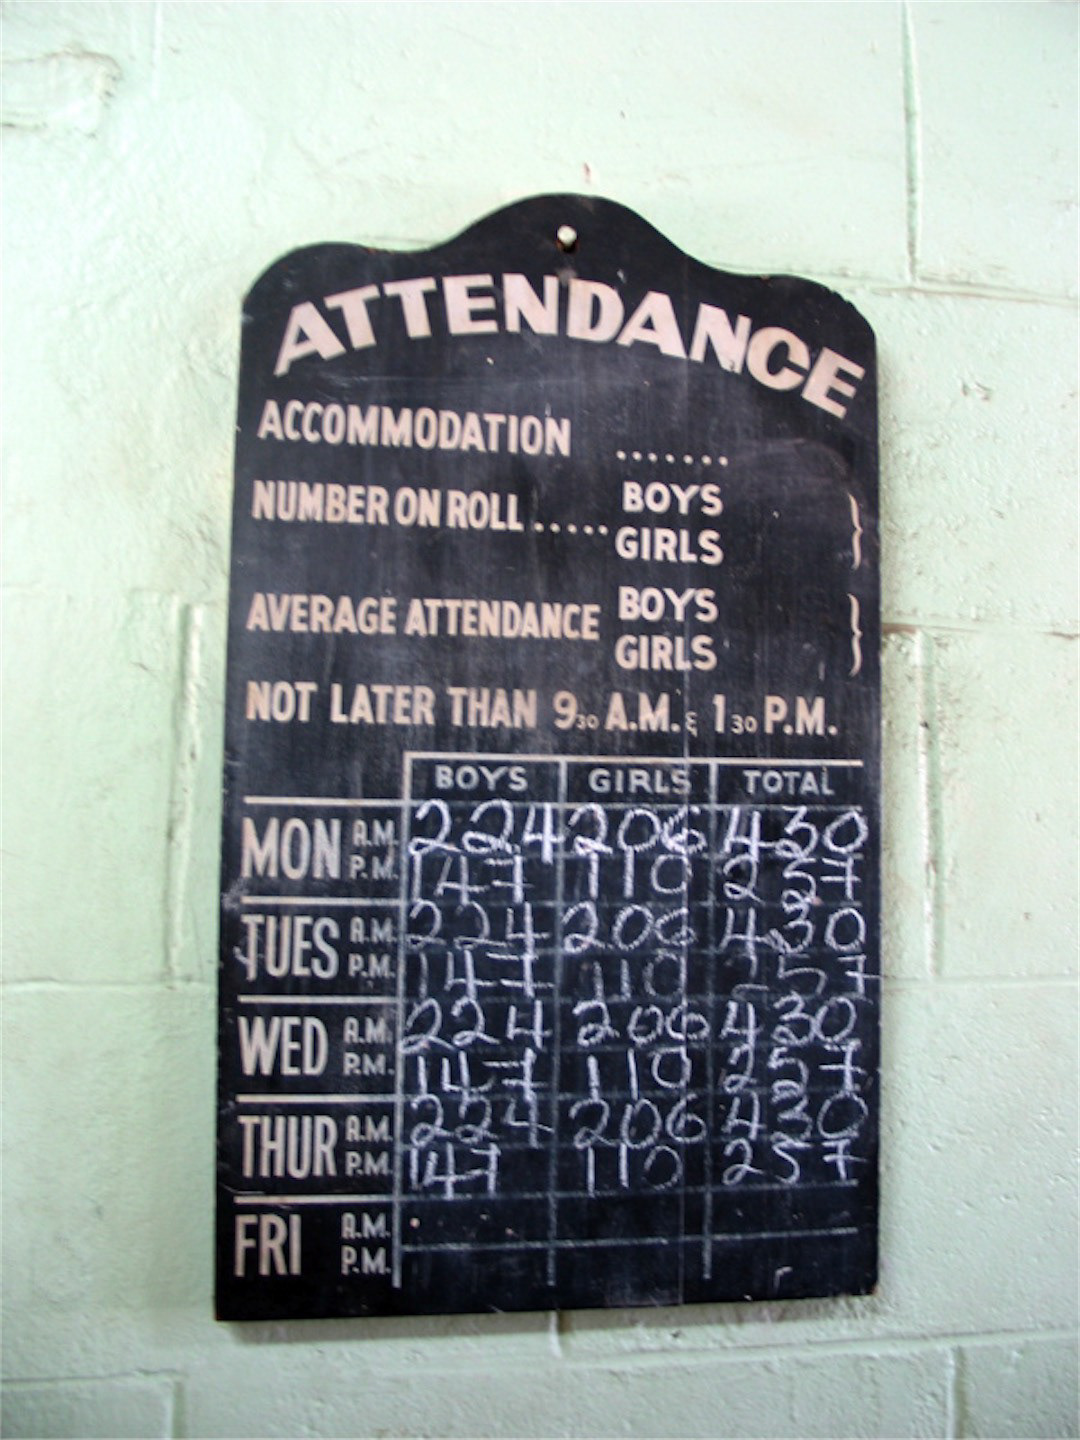 ATTENDANCE
ACCOMMODATION .......
NUMBER ON ROLL ..... BOYS
GIRLS
AVERAGE ATTENDANCE BOYS
GIRLS
NOT LATER THAN 9 30 A.M. & 1 30 P.M.
BOYS GIRLS TOTAL
MON A.M. 224 206 430
P.M. 147 110 257
TUES A.M. 224 206 430
P.M. 147 110 257
WED A.M. 224 206 430
P.M. 147 110 257
THUR A.M. 224 206 430
P.M. 147 110 257
FRI A.M.
P.M.